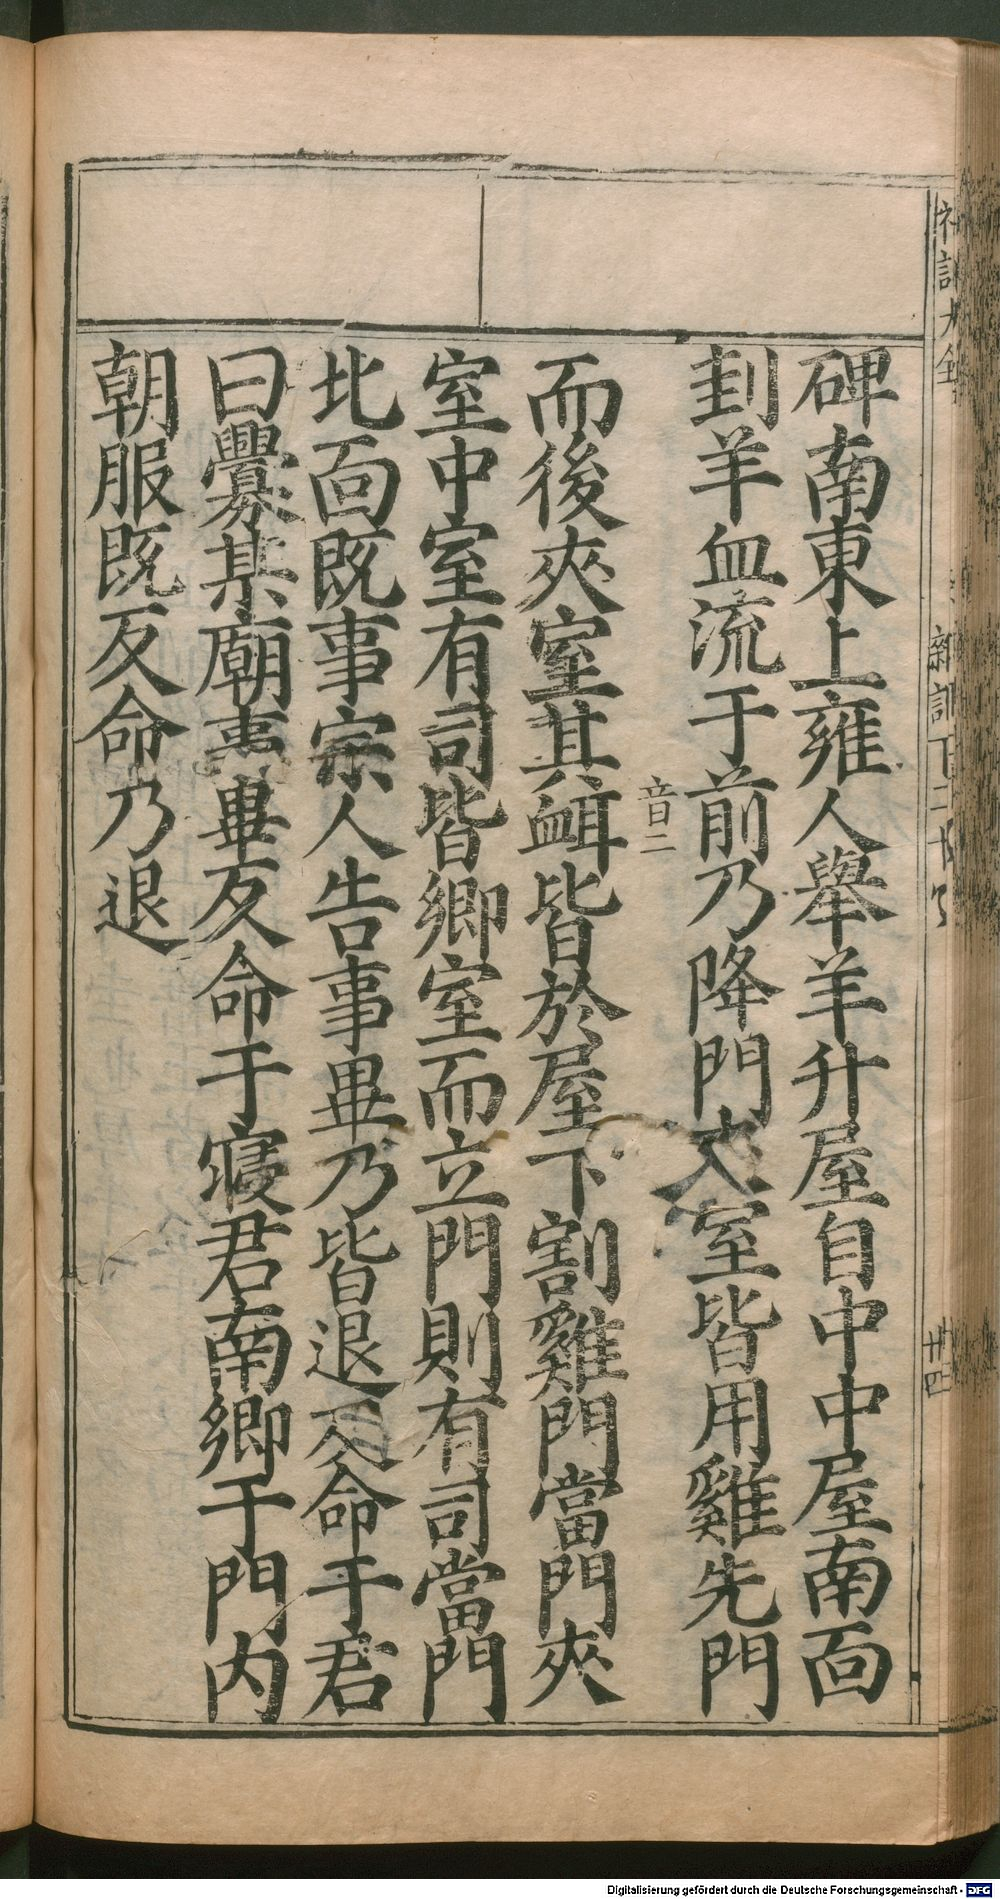 碑南東上雍人舉羊升屋自中中屋南面
刲羊血流于前乃降門夾室皆用雞先門
而後夾室其衈皆於屋下割雞門當門夾
音二
室中室有司皆鄉室而立門則有司當門
北面既事宗人告事畢乃皆退反命于君
曰釁某廟事畢反命于寢君南鄉于門内
朝服既反命乃退
廿四
Digitalisierung gefördert durch die Deutsche Forschungsgemeinschaft - DFG